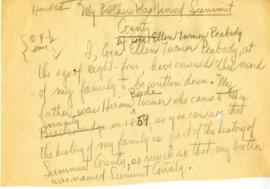 My Brother Was Named Summit
County
by Cora Ellen Turner Peabody
I, Cora Ellen Turner Peabody, at
the age of eighty-four have caused this record
of my family to be written down. My
father was Hiram Turner who came to
Breckenridge in 1859, so you can say that
the history of my family is part of the history of
Summit County, so much so that my brother
was named Summit County.